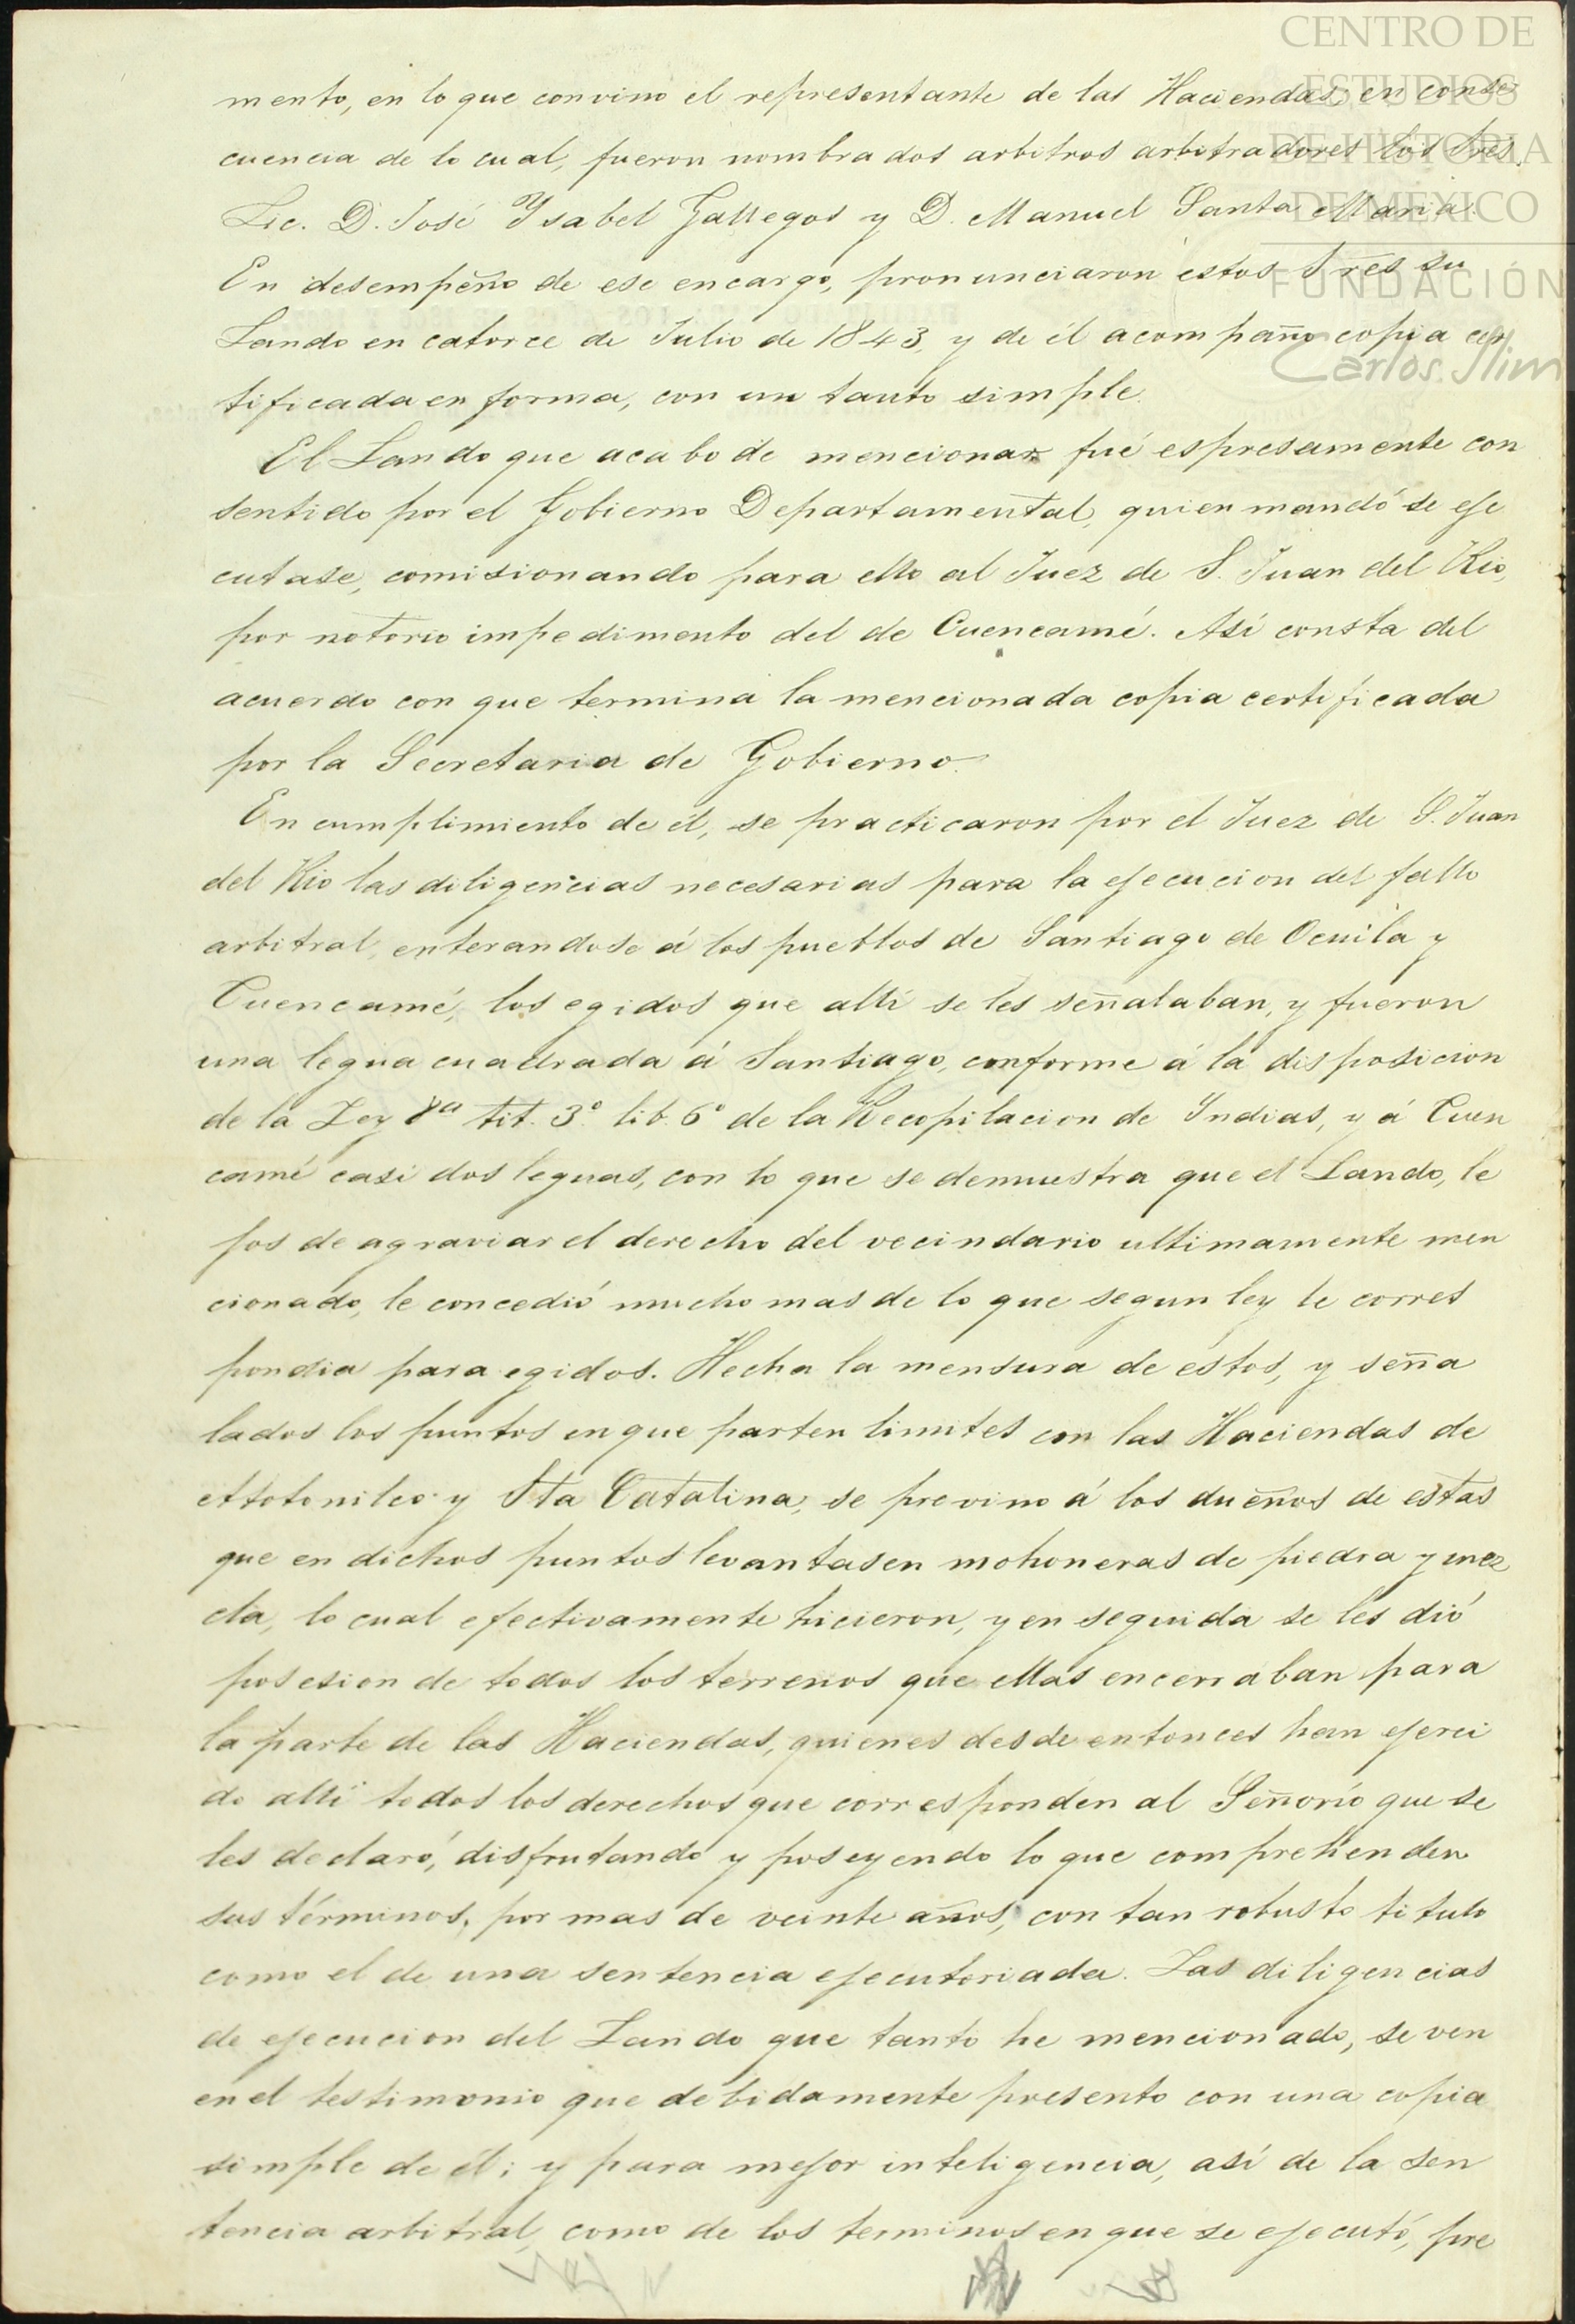 CENTRO DE
ESTUDIOS
DE HISTORIA
DE MÉXICO
FUNDACIÓN
Carlos Slim
mento, en lo que convino el representante de las Haciendas; en conse
cuencia de lo cual, fueron nombrados arbitros arbitradores los Sres.
Lic. D. José Ysabel Gallegos y D. Manuel Santa Maria.
En desempeño de ese encargo, pronunciaron estos Sres su
Laudo en catorce de Julio de 1843, y de él acompaño copia cer
tificada en forma, con un tanto simple.
El Laudo que acabo de mencionar fué espresamente con
sentido por el Gobierno Departamental, quien mandó se eje
cutase, comisionando para ello al Juez de S. Juan del Rio,
por notorio impedimento del de Cuencamé. Así consta del
acuerdo con que termina la mencionada copia certificada
por la Secretaria de Gobierno.
En cumplimiento de él, se practicaron por el Juez de S. Juan
del Rio las diligencias necesarias para la ejecucion del fallo
arbitral, enterandose á los pueblos de Santiago de Ocuila y
Cuencamé, los egidos que allí se les señalaban, y fueron
una legua cuadrada á Santiago, conforme á la disposicion
de la Ley 8a tit. 3º lib. 6º de la Recopilacion de Indias, y á Cuen
camé casi dos leguas, con lo que se demuestra que el Laudo, le
jos de agraviar el derecho del vecindario ultimamente men
cionado, le concedió mucho mas de lo que segun ley le corres
pondia para egidos. Hecha la mensura de éstos, y seña
lados los puntos en que parten limites con las Haciendas de
Atotonilco y Sta Catalina, se previno á los dueños de estas
que en dichos puntos levantasen mohoneras de piedra y mez
cla, lo cual efectivamente hicieron, y en seguida se les dió
posesion de todos los terrenos que ellas encerraban para
la parte de las Haciendas, quienes desde entonces han ejerci
do allí todos los derechos que corresponden al Señorío que se
les declaró, disfrutando y poseyendo lo que comprehenden
sus términos, por mas de veinte años, con tan robusto titulo
como el de una sentencia ejecutoriada. Las diligencias
de ejecucion del Laudo que tanto he mencionado, se ven
en el testimonio que debidamente presento con una copia
simple de él; y para mejor inteligencia, así de la sen
tencia arbitral, como de los terminos en que se ejecutó, pre